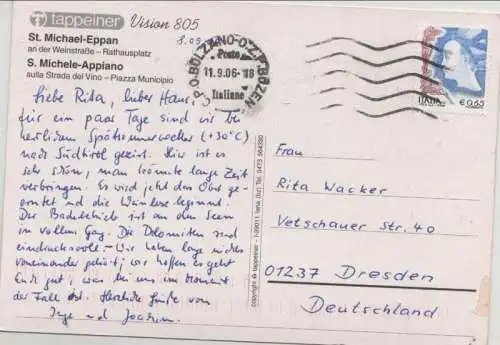 tappeiner Vision 805
St. Michael-Eppan 8.09
an der Weinstraße – Rathausplatz
S. Michele-Appiano
sulla Strada del Vino – Piazza Municipio
C.P.O-BOLZANO-O.Z.P. BOZEN
Poste
11.9.06-18
Italiane
ITALIA
€ 0,65
Liebe Rita, lieber Hans,
für ein paar Tage sind wir bei
herrlichem Spätsommerwetter (+30°C)
nach Südtirol gereist. Hier ist es
sehr schön, man könnte lange Zeit
verbringen. Es wird jetzt das Obst ge-
erntet und die Weinlese beginnt.
Der Badebetrieb ist an den Seen
in vollem Gang. Die Dolomiten sind
eindrucksvoll. - Wir haben lange nichts
voneinander gehört; wir hoffen es geht
Euch gut, was bei uns im Moment
der Fall ist. Herzliche Grüße von
Inge und Joachim.
copyright © tappeiner - I-39011 lana (bz) Tel. 0473 564230
Frau
Rita Wacker
Vetschauer Str. 40
01237 Dresden
Deutschland